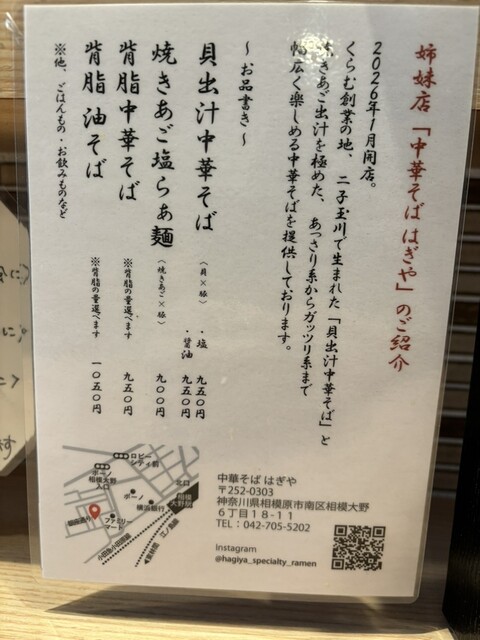 姉妹店「中華そば はぎや」のご紹介
2026年1月開店。
くらむ創業の地、二子玉川で生まれた「貝出汁中華そば」と
焼きあご出汁を極めた、あっさり系からガッツリ系まで
幅広く楽しめる中華そばを提供しております。
～お品書き～
貝出汁中華そば（貝×豚）・塩 九五〇円
・醤油 九五〇円
焼きあご塩らぁ麺（焼きあご×豚） 九〇〇円
背脂中華そば ※背脂の量選べます 九五〇円
背脂油そば ※背脂の量選べます 一〇五〇円
※他、ごはんもの・お飲みものなど
ロビーシティ前
ボーノ相模大野入口
北口
ボーノ
横浜銀行
相模大野駅
ファミリーマート
小田急小田原線
江ノ島線
中華そば はぎや
〒252-0303
神奈川県相模原市南区相模大野
6丁目18-11
TEL：042-705-5202
Instagram
@hagiya_specialty_ramen